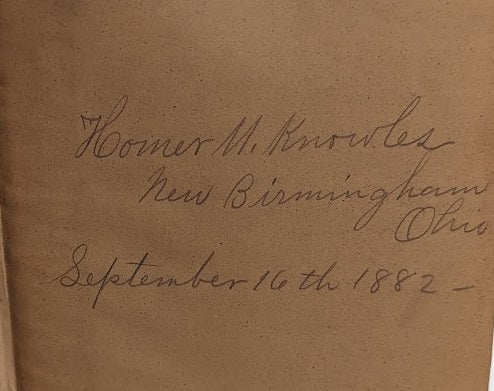 Homer M. Knowles
New Birmingham
Ohio
September 16th 1882 -